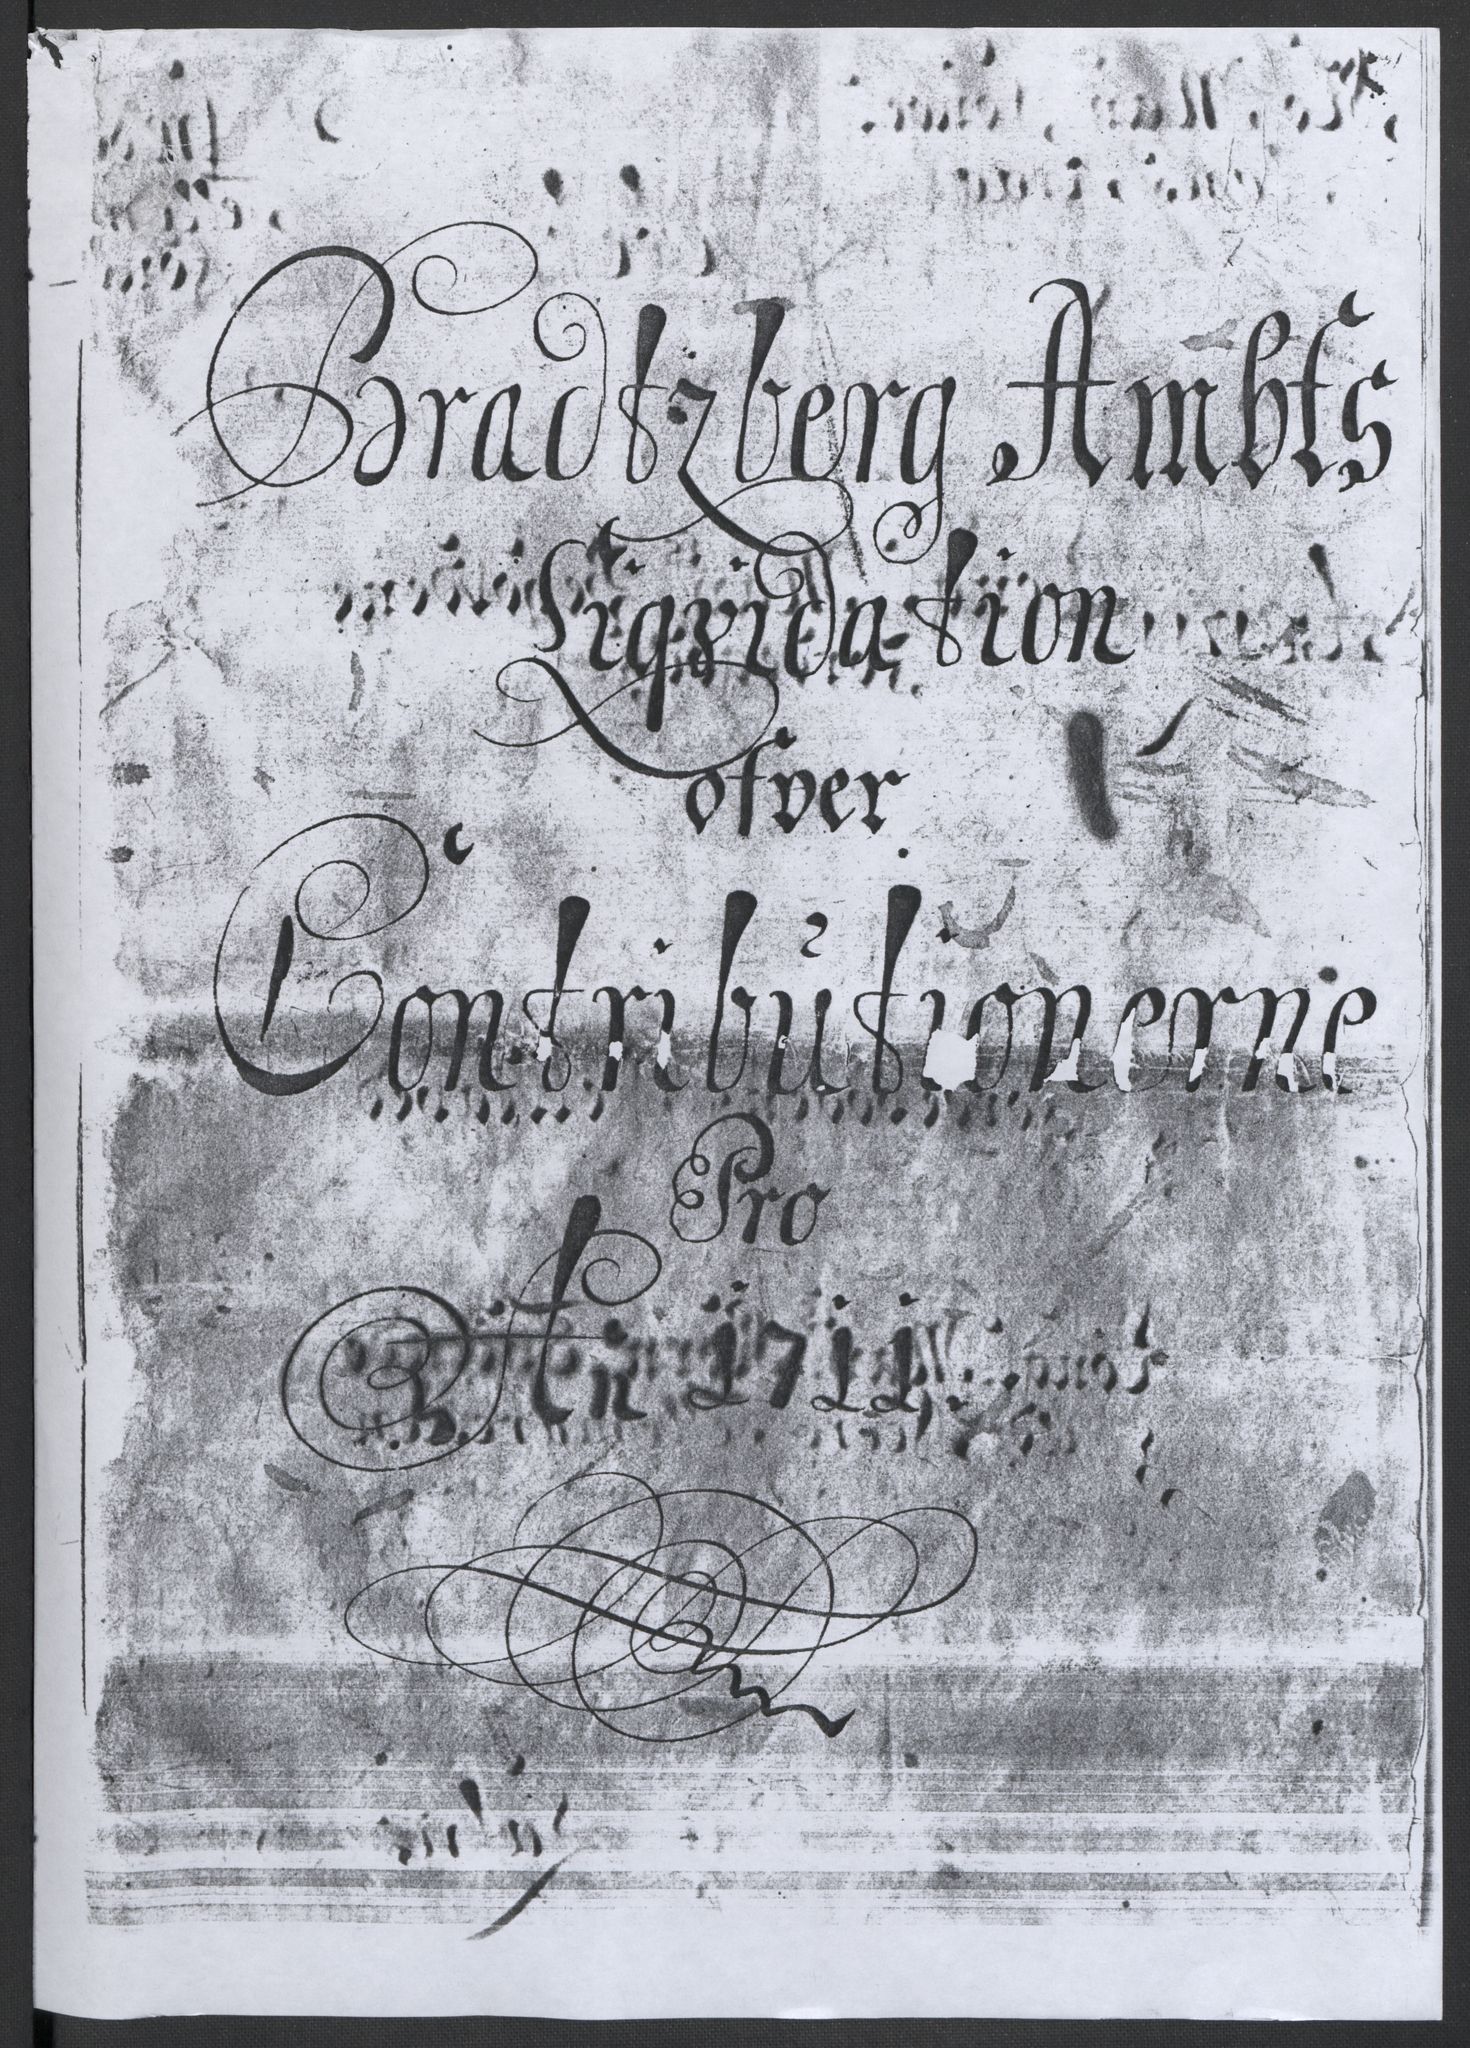 Bradtzberg Ambts
Liqvida-tion
ofver
Contributionerne
Pro
An 1711.